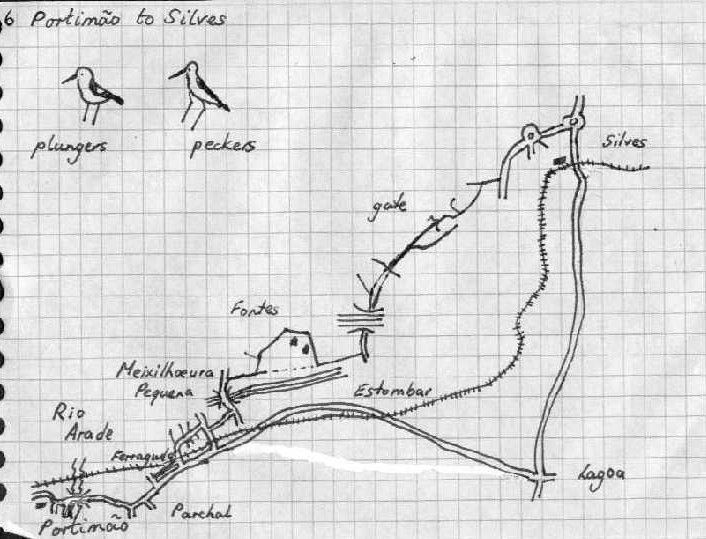 6 Portimão to Silves
plungers
peckers
Silves
gate
Fontes
Meixilhoeura
Pequena
Estombar
Rio
Arade
Ferragudo
Lagoa
Parchal
Portimão